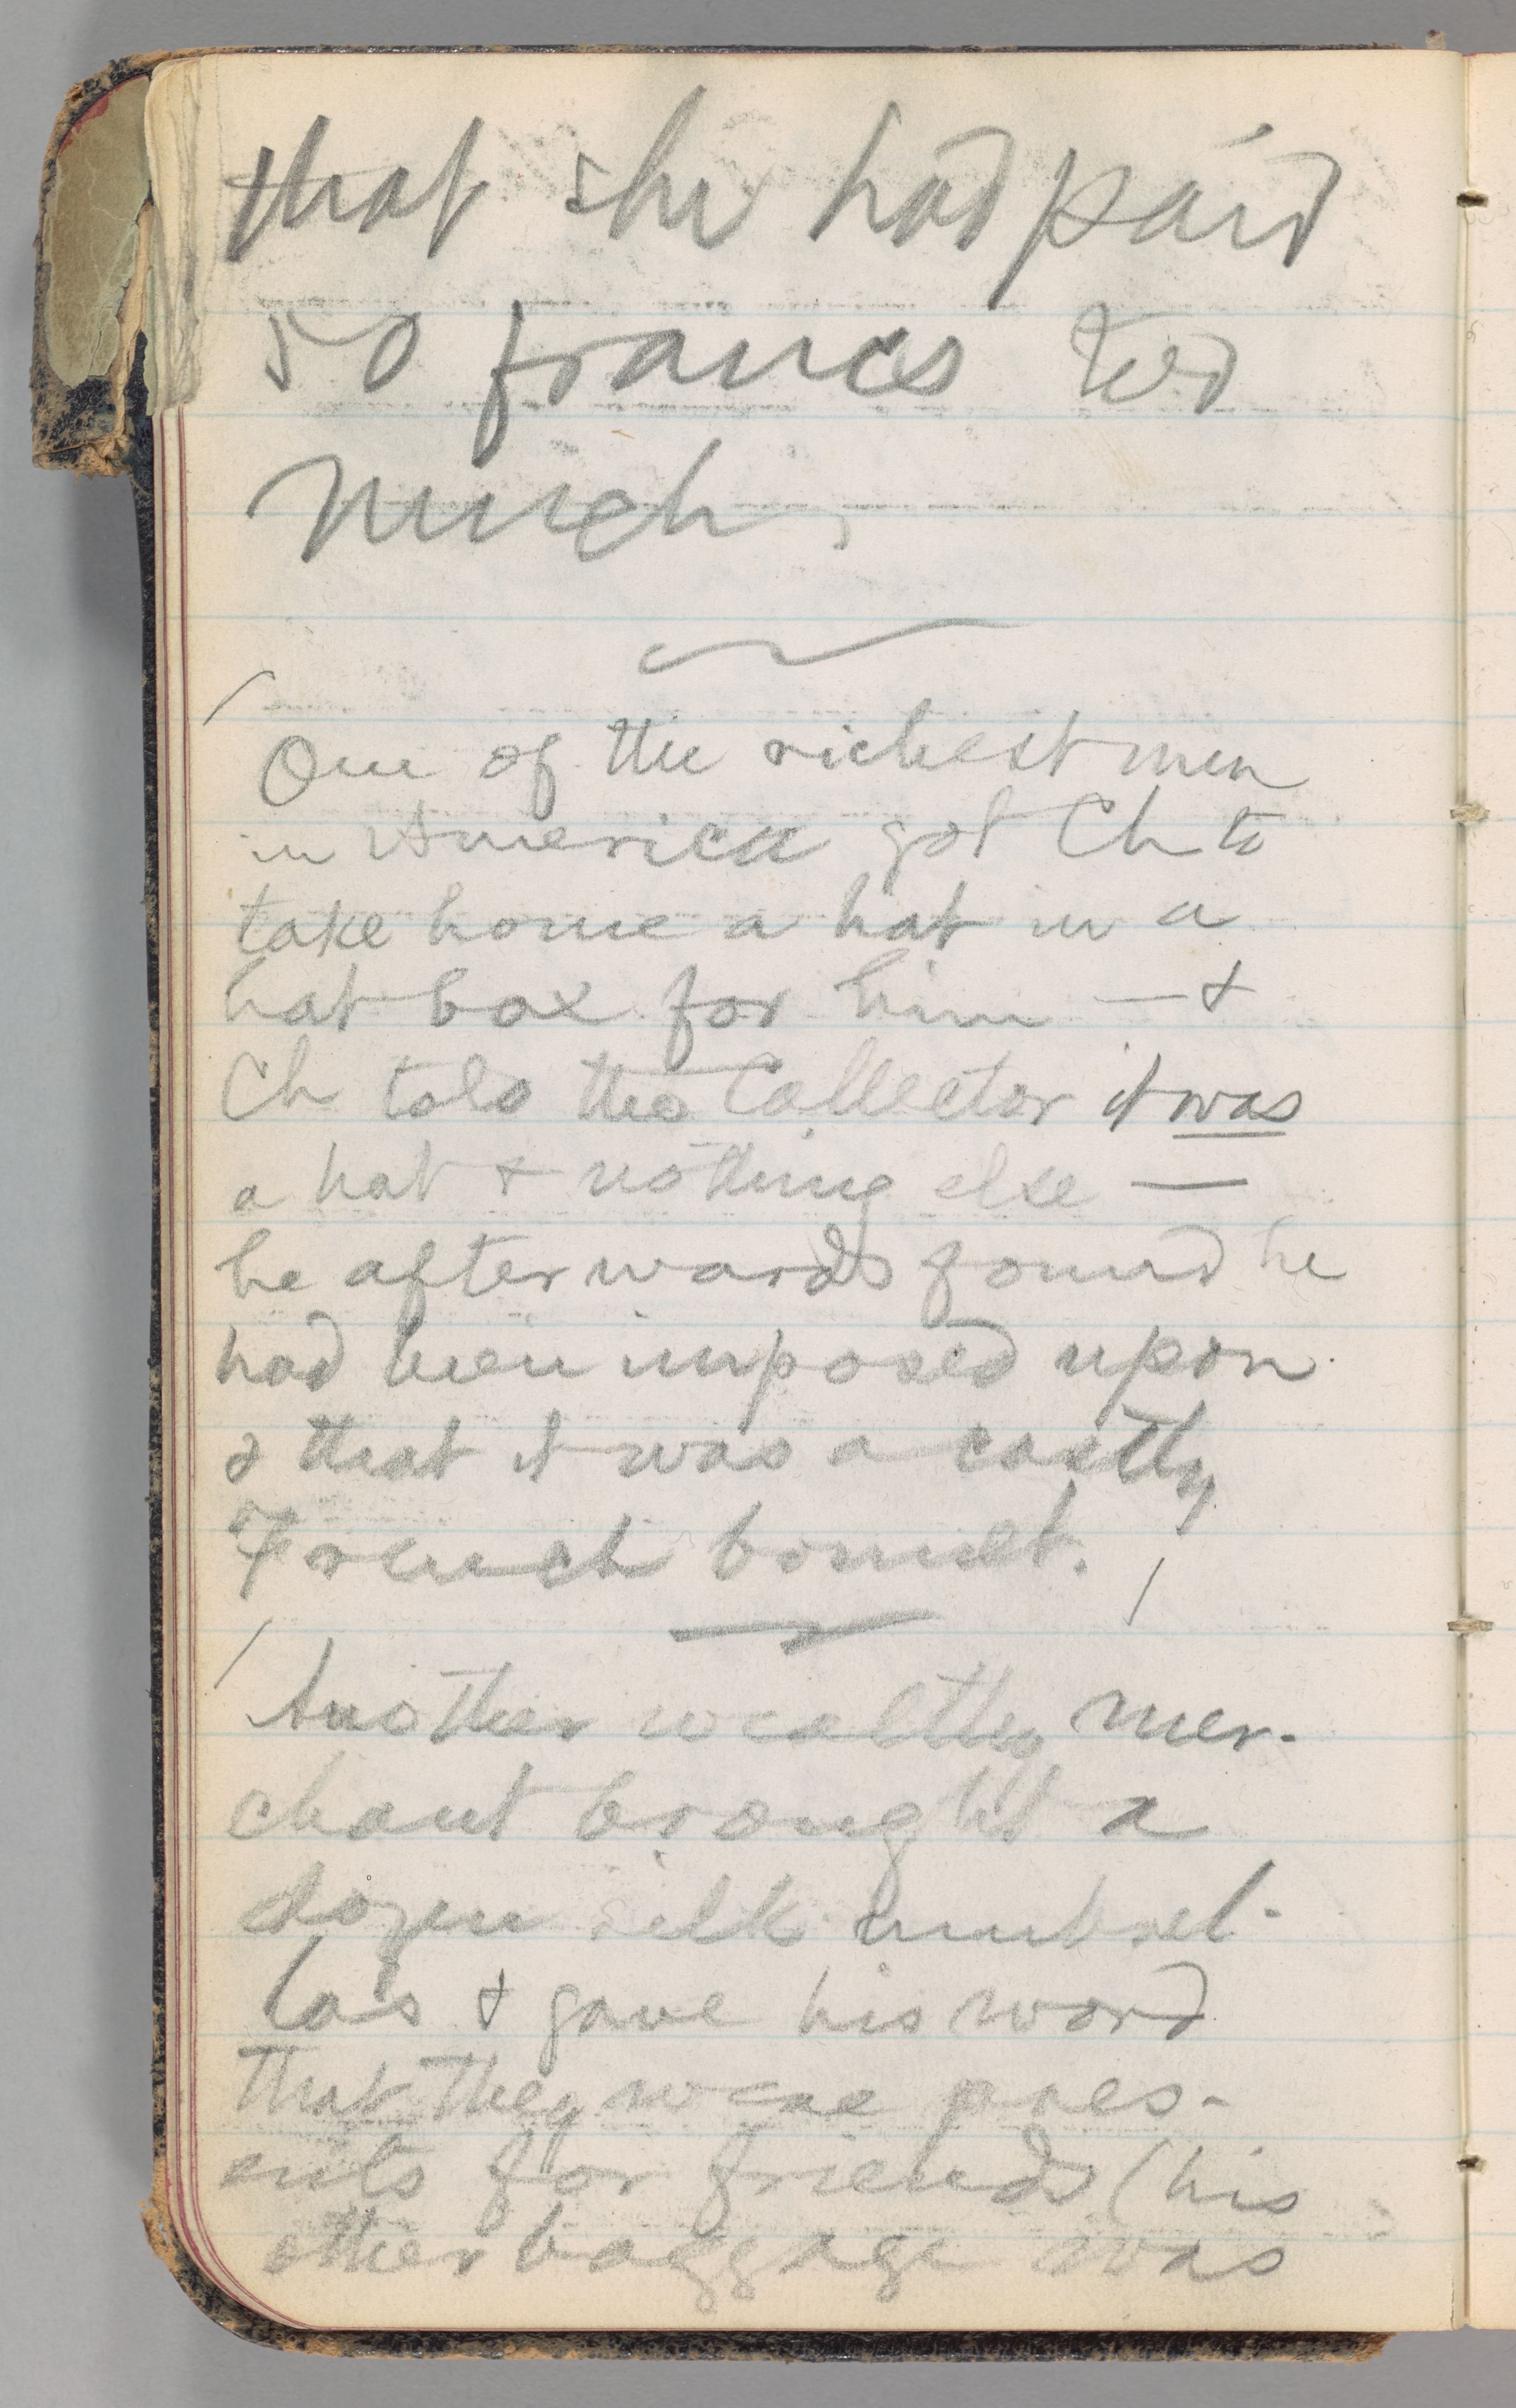 that she had paid
50 francs too
much.
One of the richest men
in America got Ch to
take home a hat in a
hat box for him — &
Ch told the Collector it was
a hat & nothing else —
he afterwards found he
had been imposed upon
& that it was a costly
French bonnet.
Another wealthy mer-
chant brought a
dozen silk umbrel-
las & gave his word
that they were pres-
ents for friends (his
other baggage was